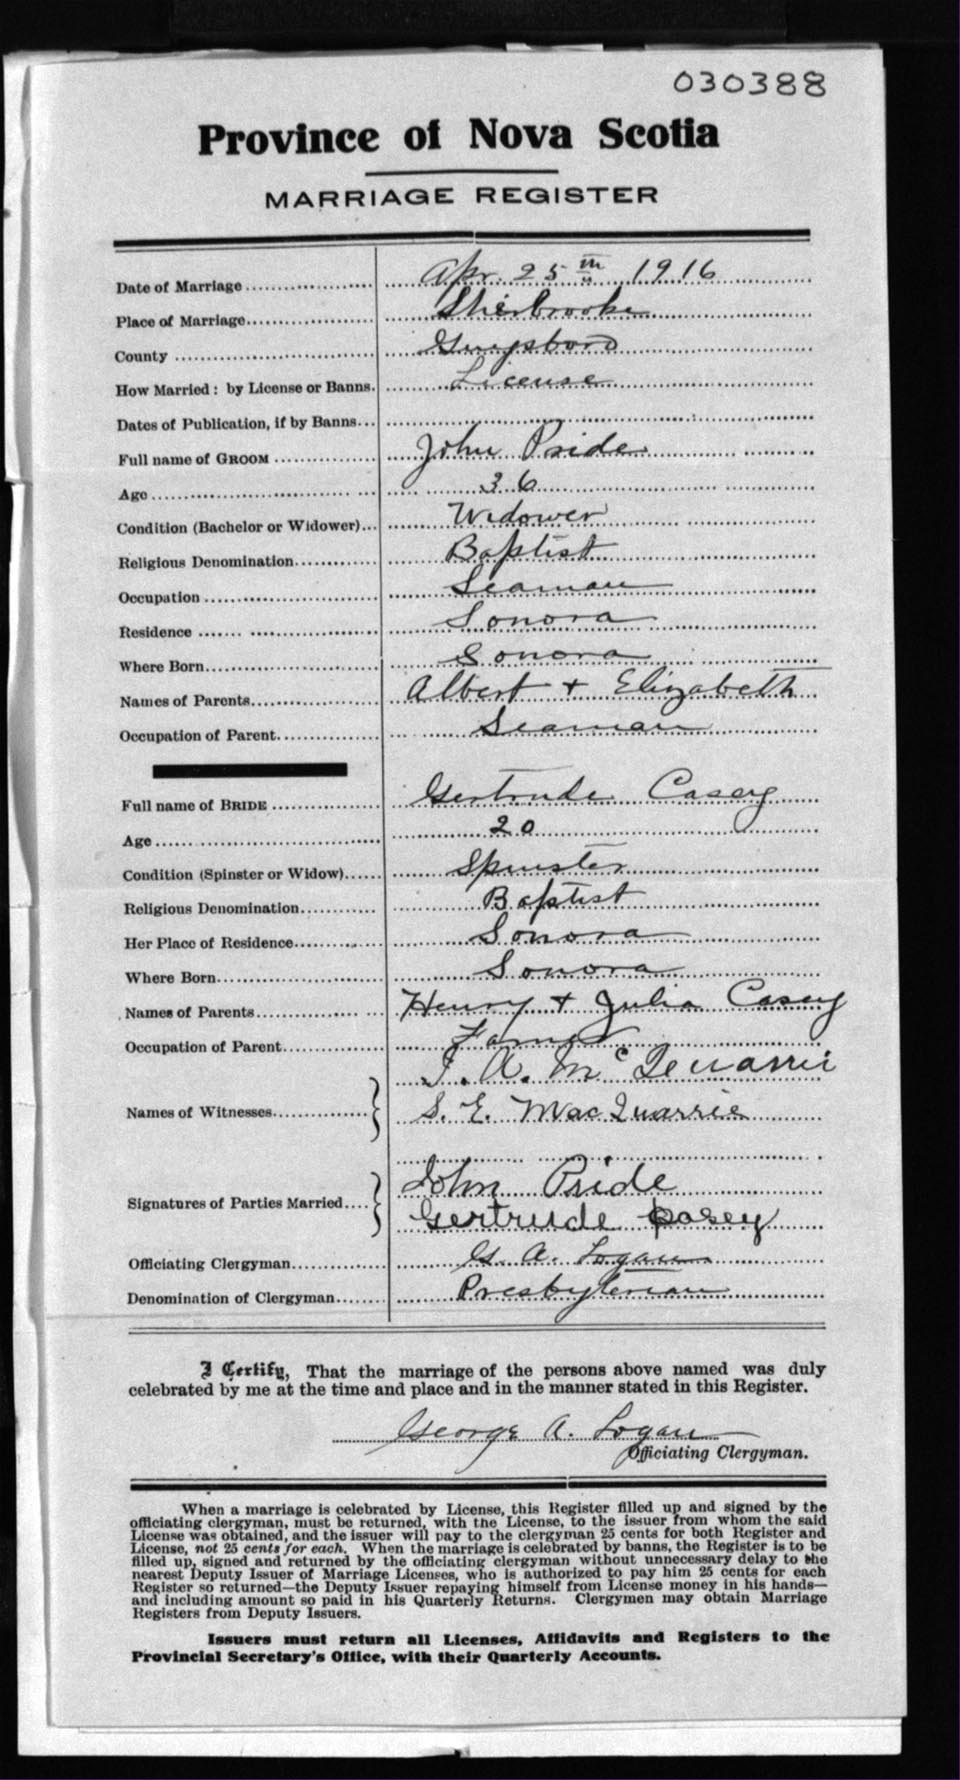 030388
Province of Nova Scotia
MARRIAGE REGISTER
Date of Marriage Apr. 25th 1916
Place of Marriage Sherbrooke
County Guysboro
How Married: by License or Banns. License
Dates of Publication, if by Banns
Full name of GROOM John Pride
Age 36
Condition (Bachelor or Widower) Widower
Religious Denomination Baptist
Occupation Seaman
Residence Sonora
Where Born Sonora
Names of Parents Albert + Elizabeth
Occupation of Parent Seaman
Full name of BRIDE Gertrude Casey
Age 20
Condition (Spinster or Widow) Spinster
Religious Denomination Baptist
Her Place of Residence Sonora
Where Born Sonora
Names of Parents Henry + Julia Casey
Occupation of Parent Farmer
A.
Names of Witnesses S. E. MacQuarrie
Signatures of Parties Married John Pride
Gertrude Casey
Officiating Clergyman G. A. Logan
Denomination of Clergyman Presbyterian
I Certify, That the marriage of the persons above named was duly
celebrated by me at the time and place and in the manner stated in this Register.
George A. Logan
Officiating Clergyman.
When a marriage is celebrated by License, this Register filled up and signed by the
officiating clergyman, must be returned, with the License, to the issuer from whom the said
License was obtained, and the issuer will pay to the clergyman 25 cents for both Register and
License, not 25 cents for each. When the marriage is celebrated by banns, the Register is to be
filled up, signed and returned by the officiating clergyman without unnecessary delay to the
nearest Deputy Issuer of Marriage Licenses, who is authorized to pay him 25 cents for each
Register so returned—the Deputy Issuer repaying himself from License money in his hands—
and including amount so paid in his Quarterly Returns. Clergymen may obtain Marriage
Registers from Deputy Issuers.
Issuers must return all Licenses, Affidavits and Registers to the
Provincial Secretary's Office, with their Quarterly Accounts.